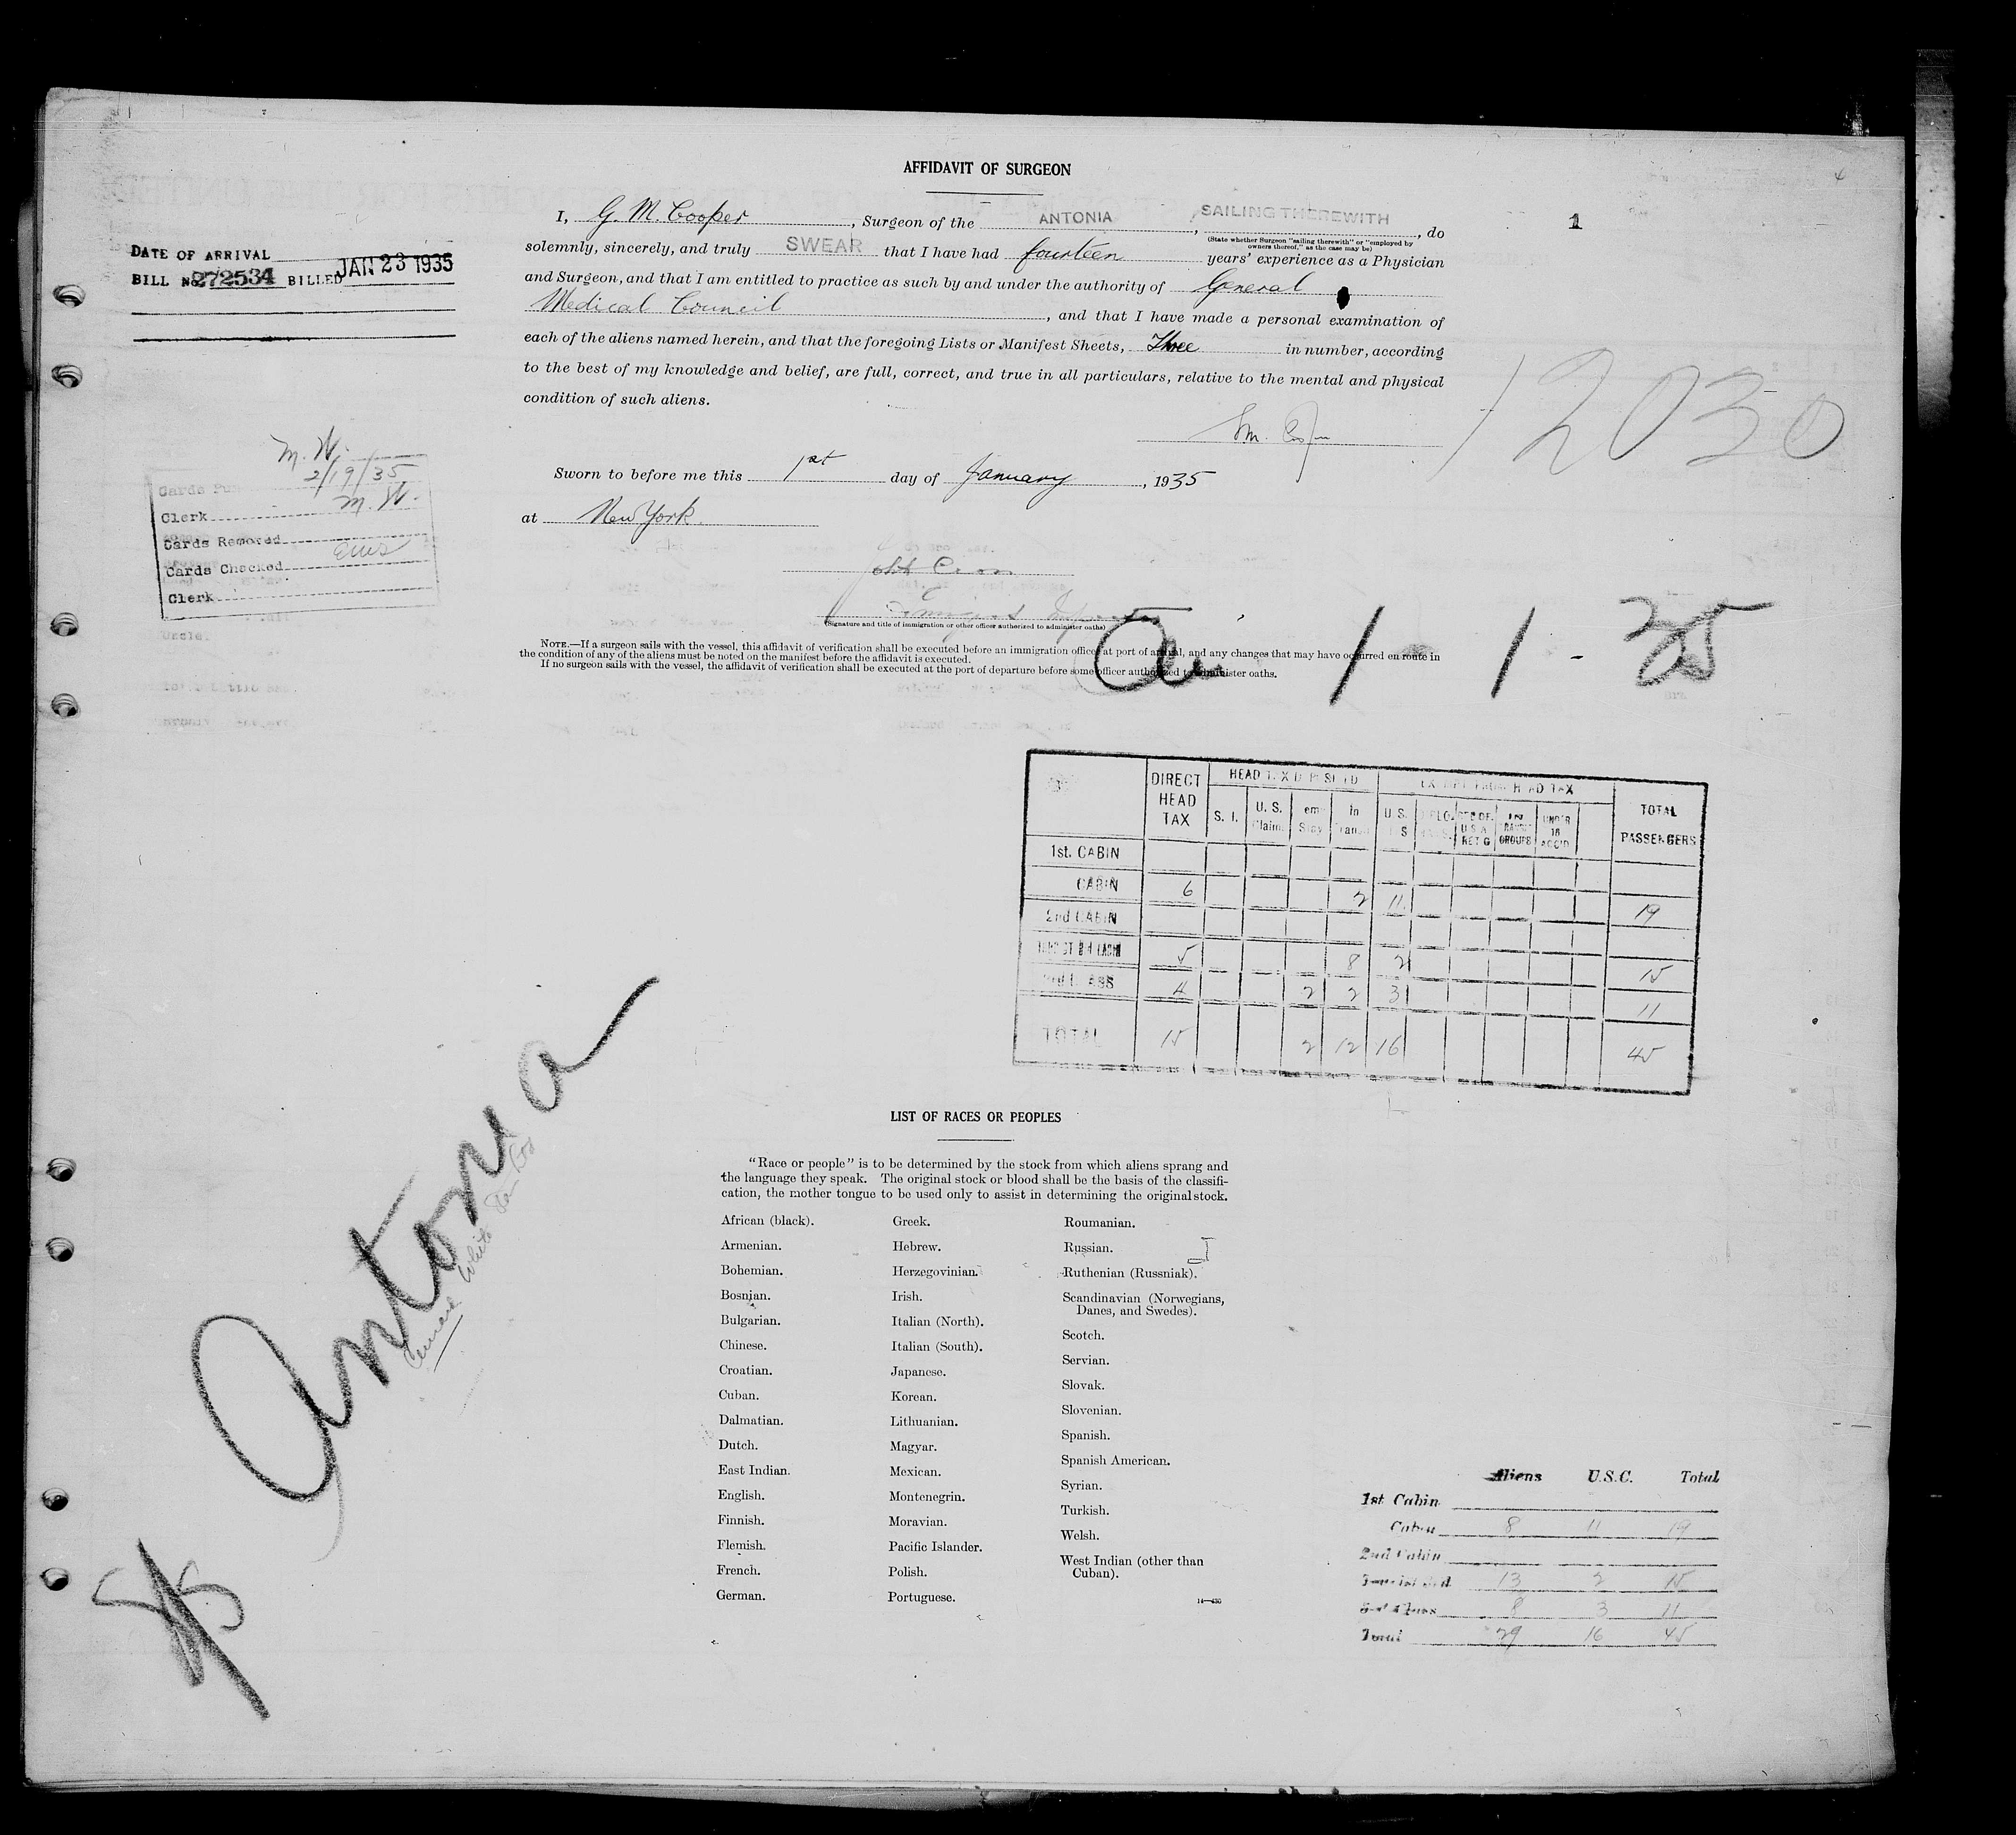 AFFIDAVIT OF SURGEON
1
I, G. M. Cooper, Surgeon of the ANTONIA, SAILING THEREWITH, do
(State whether Surgeon "sailing therewith" or "employed by
owners thereof," as the case may be)
solemnly, sincerely, and truly SWEAR that I have had fourteen years' experience as a Physician
and Surgeon, and that I am entitled to practice as such by and under the authority of General
Medical Council, and that I have made a personal examination of
each of the aliens named herein, and that the foregoing Lists or Manifest Sheets, Three in number, according
to the best of my knowledge and belief, are full, correct, and true in all particulars, relative to the mental and physical
condition of such aliens.
DATE OF ARRIVAL
BILL No 272534 BILLED JAN 23 1935
1 2030
Sworn to before me this 1st day of January, 1935
at New York
M. W.
2/19/35
Clerk M. W.
Cards Removed
Cards Checked
Clerk
(Signature and title of immigration or other officer authorized to administer oaths)
NOTE.—If a surgeon sails with the vessel, this affidavit of verification shall be executed before an immigration officer at port of arrival, and any changes that may have occurred en route in
the condition of any of the aliens must be noted on the manifest before the affidavit is executed.
If no surgeon sails with the vessel, the affidavit of verification shall be executed at the port of departure before some officer authorized to administer oaths.
1 1 - 35
DIRECT HEAD TAX
S. I. U. S. Claim
TOTAL PASSENGERS
1st. CABIN
CABIN 6 2 11 19
2nd CABIN
5 8 2 15
4 2 2 3 11
TOTAL 15 2 12 16 45
Antonia
Cunard White Star
LIST OF RACES OR PEOPLES
"Race or people" is to be determined by the stock from which aliens sprang and
the language they speak. The original stock or blood shall be the basis of the classifi-
cation, the mother tongue to be used only to assist in determining the original stock.
African (black).
Armenian.
Bohemian.
Bosnian.
Bulgarian.
Chinese.
Croatian.
Cuban.
Dalmatian.
Dutch.
East Indian.
English.
Finnish.
Flemish.
French.
German.
Greek.
Hebrew.
Herzegovinian.
Irish.
Italian (North).
Italian (South).
Japanese.
Korean.
Lithuanian.
Magyar.
Mexican.
Montenegrin.
Moravian.
Pacific Islander.
Polish.
Portuguese.
Roumanian.
Russian.
Ruthenian (Russniak).
Scandinavian (Norwegians,
Danes, and Swedes).
Scotch.
Servian.
Slovak.
Slovenian.
Spanish.
Spanish American.
Syrian.
Turkish.
Welsh.
West Indian (other than
Cuban).
Aliens U.S.C. Total
1st Cabin
Cabin 8 11 19
2nd Cabin
13 2 15
8 3 11
Total 29 16 45